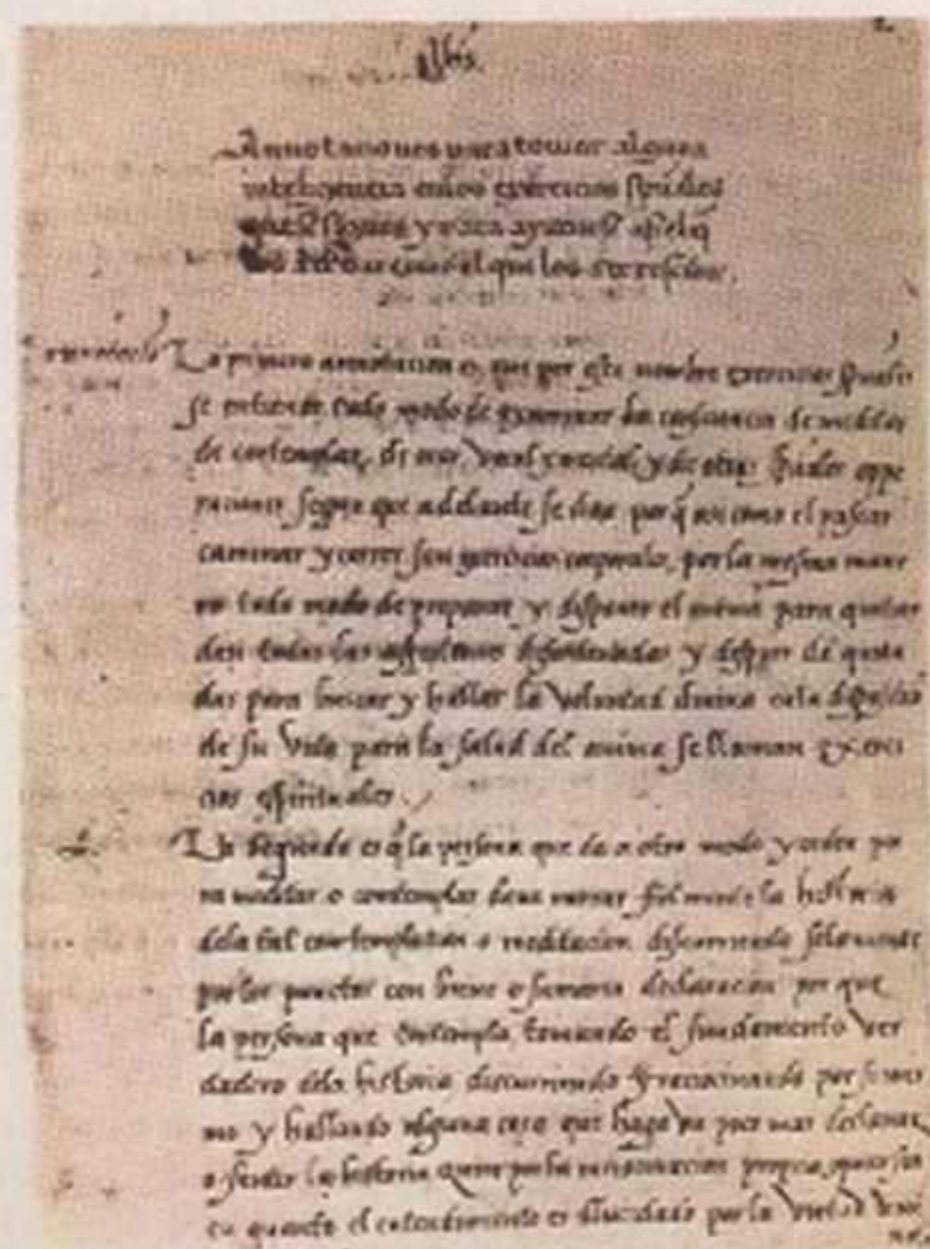 Jhs
Annotaciones para tomar alguna
intelligencia en los exercicios spūales
que se siguen y para ayudarse asi el q̄
los a de dar como el que los a de rescibir.
La primera annotacion es, que por este nombre exercicios spūales
se entiende todo modo de examinar la consciencia de meditar
de contemplar, de orar vocal y mental, y de otras spūales ope
raciones segun que adelante se dira porq̄ asi como el pasear
caminar y correr son exercicios corporales, por la mesma mane
ra todo modo de preparar y disponer el anima para quitar
de si todas las affectiones desordenadas y despues de quita
das para buscar y hallar la voluntad divina en la disposicion
de su vida para la salud del anima se llaman exerci
cios spirituales.
La segunda es q̄ la persona que da a otro modo y orden pa
ra meditar o contemplar deue narrar fielmente la historia
dela tal contemplacion o meditacion discurriendo solamente
por los punctos con breue o sumaria declaracion porque
la persona que contempla tomando el fundamento ver
dadero dela historia discurriendo y raciocinando por si mis
mo y hallando alguna cosa que haga un poco mas declarar
o sentir la historia quier por la raciocinacion propria, quier sea
en quanto el entendimiento es illucidado por la virtud diui